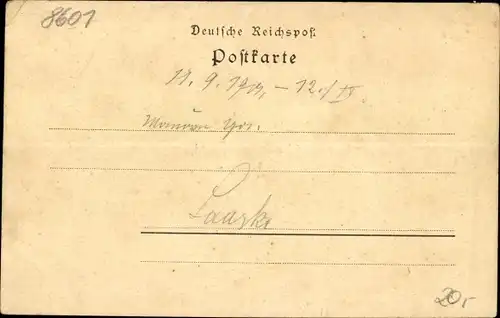 8601
Deutsche Reichspost
Postkarte
11. 9. 1901 - 12./IX.
Laaske
20,-